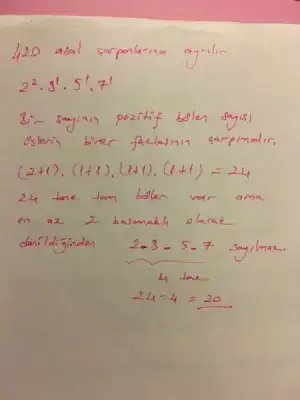 420 asal çarpanlarına ayrılır
2². 3¹. 5¹. 7¹
Bir sayının pozitif bölen sayısı
üslerin birer fazlasının çarpımıdır.
(2+1). (1+1). (1+1). (1+1) = 24
24 tane tam bölen var ama
en az 2 basamaklı olacak
denildiğinden 2 - 3 - 5 - 7 sayılmaz.
4 tane
24 - 4 = 20